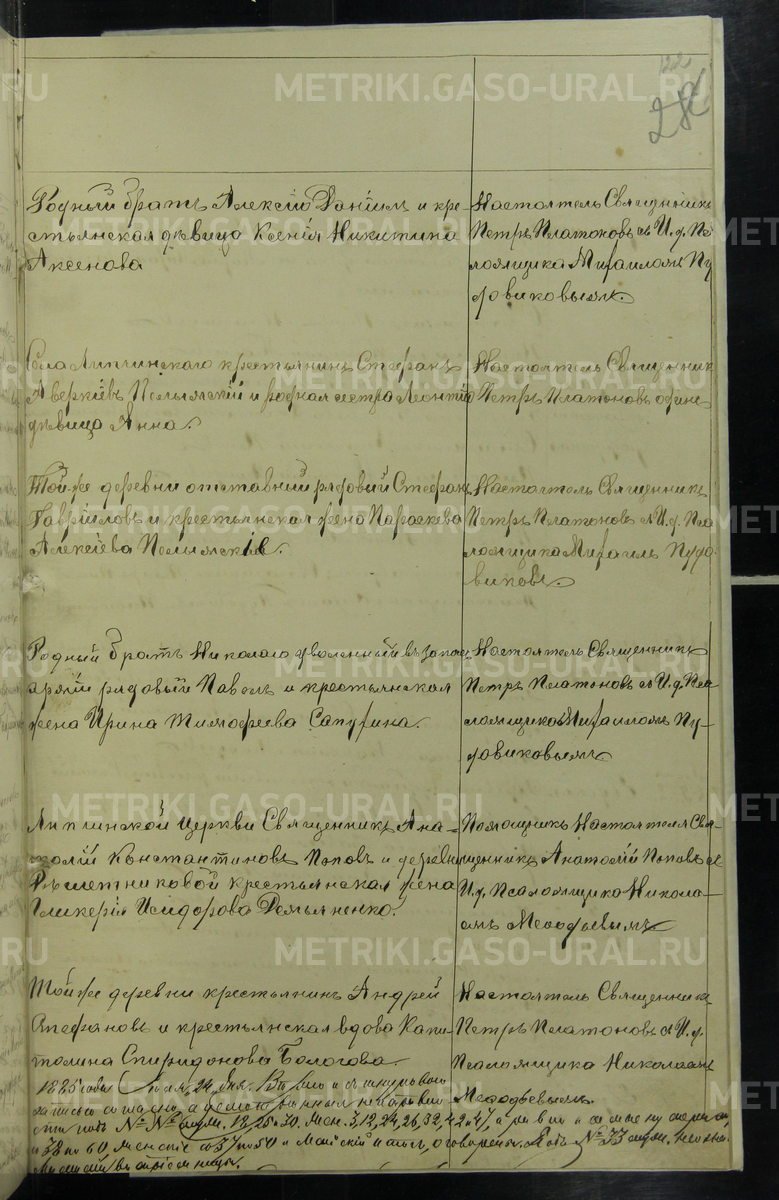 122
28
Родный братъ Алексія Даніилъ и кре-
стьянская дѣвица Ксенія Никитина
Аксенова
Настоятель Священникъ
Петръ Платоновъ съ И. д. Пса
ломщика Михаиломъ Пу
довиковымъ.
Села Липчинскаго крестьянинъ Стефанъ
Аверкіевъ Пелымскій и родная сестра Леонтія
дѣвица Анна.
Настоятель Священник
Петръ Платоновъ одине
Той же деревни отставный рядовый Стефанъ
Гавріиловъ и крестьянская жена Параскева
Алексіева Пелымскіе.
Настоятель Священникъ
Петръ Платоновъ съ И. д. Пса
ломщика Михаилъ Пудо
виковъ.
Родный братъ Николая уволенный въ запас
арміи рядовый Павелъ и крестьянская
жена Ирина Тимофеева Сапугина.
Настоятель Священникъ
Петръ Платоновъ съ И. д. Пса
ломщика Михаиломъ Пу-
довиковымъ
Липчинской Церкви Священникъ Ана-
толій Константиновъ Поповъ и деревни
Рѣшетниковой крестьянская жена
Гликерія Исидорова Демьяненко.
Помощникъ Настоятеля Свя-
щенникъ Анатолій Поповъ съ
И. д. Псаломщика Никола-
емъ Меѳодьевымъ
Той же деревни крестьянинъ Андрей
Стефановъ и крестьянская вдова Капи-
толина Спиридонова Бологова.
Настоятель Священникъ
Петръ Платоновъ съ И. д.
Псаломщика Николаемъ
Меѳодьевымъ.
1885 года 24 дня.
подъ №№ 18, 25 и 30, жен. 3, 12, 24, 26, 32, 42 и 47,
и 38 по 60, женскіе съ 37 по 50 и оговорены. Подъ № 33
METRIKI.GASO-URAL.RU